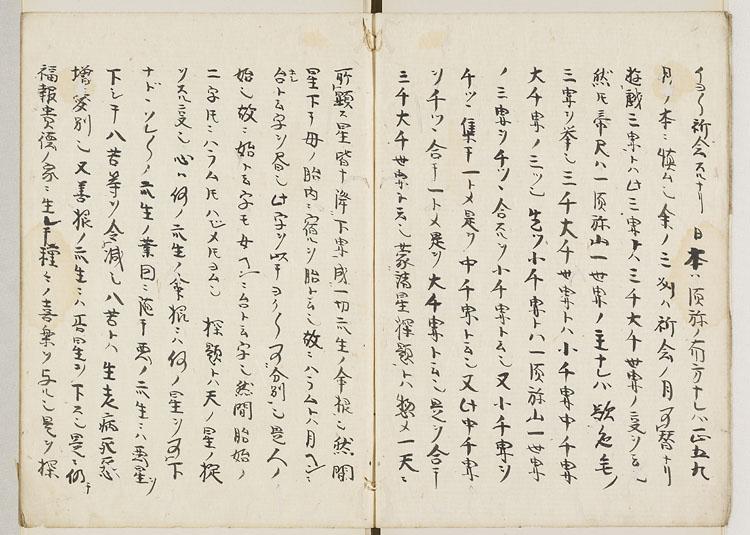 イヨ〱祈念スルナリ 日本ハ須弥ノ南方ナレハ正五九
月ノ本ニ慎ム也余ノ三州ハ祈念ノ月可替ナリ
遊戯三界トハ此三界トハ三千大千世界ノ受也
然ルニ帝尺ハ一須弥山一世界ノ主ナレハ
三界ヲ挙也三千大千世界トハ小千界中千界
大千界ノ三ツ也先ツ小千界トハ一須弥山一世界
ノ三界ヲ千ツ合スヲ小千界ト云也又小千界ヲ
千ツ集テ一トメ是ヲ中千界ト云也又此中千界
ヲ千ツ合テ一トメ是ヲ大千界ト云也是ヲ合テ
三千大千世界ト云也 諸星探題トハ惣メ一天ニ
所顕ス星皆下降下界成一切衆生ノ命根也然間
星下テ母ノ胎内ニ宿ルヲ胎ト云也故ニハラムトハ月ヘンニ
台ト云字ヲ書也此字ヲ以テヨク〱可分別也是人ノ
始也故ニ始ト云字モ女ヘンニ台ト云字也然間胎始ノ
二字凡ニハラム凡ハシメ凡ヨム也 探題トハ天ノ星ノ掟
ヲスル受也心ハ何ノ衆生ノ命根ニハ何ノ星ヲ可下
ナドヽソレ〱ノ衆生ノ業因ニ随テ悪ノ衆生ニハ悪星ヲ
下シテ八苦等ヲ令減也八苦トハ生老病死恐
増 別也又善根ノ衆生ニハ善星ヲ下ス也是ニ仍テ
福報貴徳ノ家ニ生レテ種々ノ喜楽ヲ与ル也是ヲ探